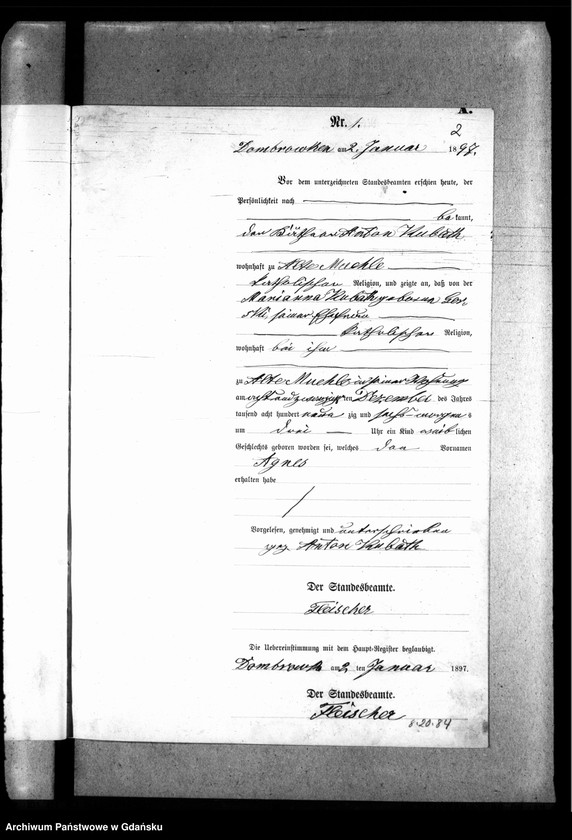 A.
Nr. 1.
2
Dombrowken am 2. Januar 1897.
Vor dem unterzeichneten Standesbeamten erschien heute, der
Persönlichkeit nach
bekannt,
den Käthner Anton Kubath
wohnhaft zu Alte Muehle
katholischer Religion, und zeigte an, daß von der
Marianna Kubath geborene Gor-
ski, seiner Ehefrau
katholischer Religion,
wohnhaft bei ihm
zu Alte Muehle in seiner Wohnung
am acht und zwanzigsten Dezember des Jahres
tausend acht hundert neunzig und sechs morgens
um drei Uhr ein Kind weiblichen
Geschlechts geboren worden sei, welches den Vornamen
Agnes
erhalten habe
Vorgelesen, genehmigt und unterschrieben
gez. Anton Kubath
Der Standesbeamte.
Fleischer
Die Uebereinstimmung mit dem Haupt-Register beglaubigt.
Dombrowken am 2. ten Januar 1897.
Der Standesbeamte.
Fleischer
8-20-84
Archiwum Państwowe w Gdańsku